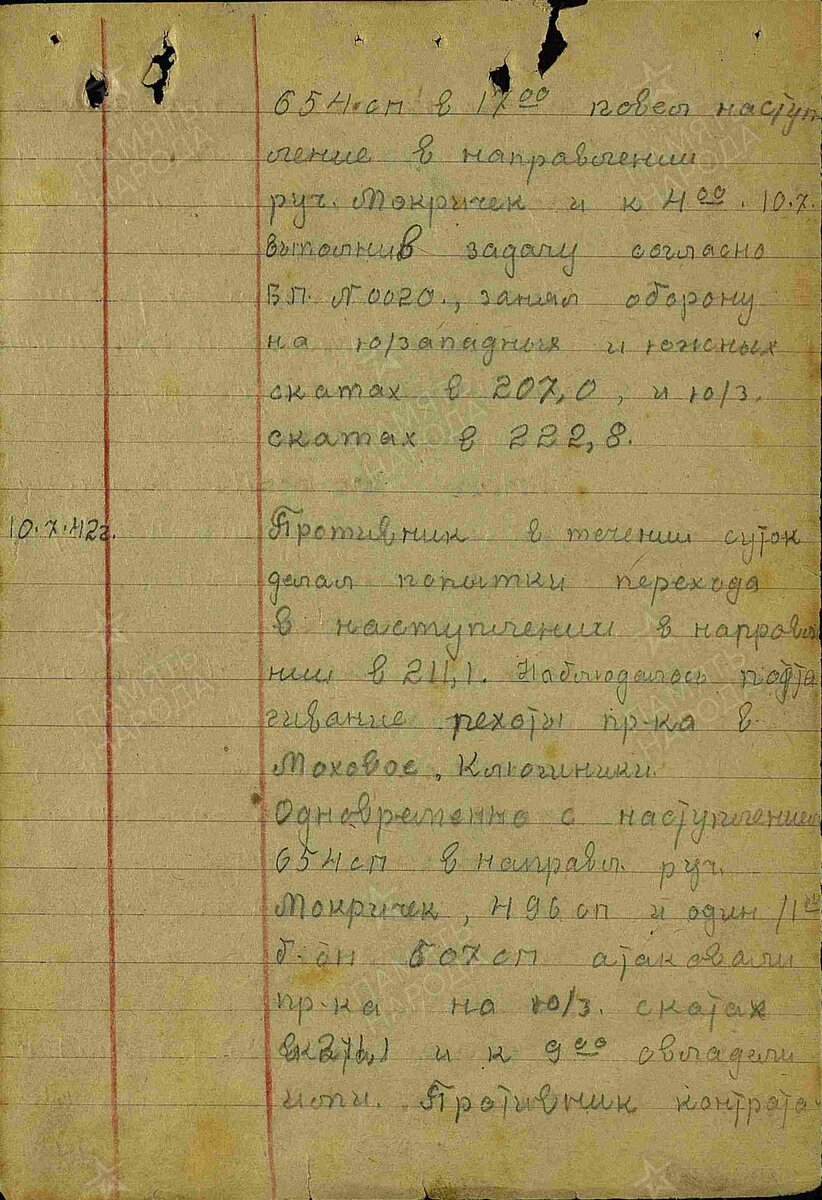 654 сп в 17 00 повел наступ
ление в направлении
руч. Мокричек и к 4 00. 10.7.
выполнив задачу согласно
Б.П. №0020., занял оборону
на ю/западных и южных
скатах в 207,0, и ю/з.
скатах в 222,8.
10.7.42г. Противник в течении суток
делал попытки перехода
в наступлении в направле
нии в 211,1. Наблюдалось подтя
гивание пехоты пр-ка в
Моховое, Ключиники.
Одновременно с наступлением
654 сп в направл. руч.
Мокричек, 496 сп и один /1
б-он 507 сп атаковали
пр-ка на ю/з. скатах
211,1 и к 9 00 овладели
ими. Противник контрата
ПАМЯТЬ НАРОДА